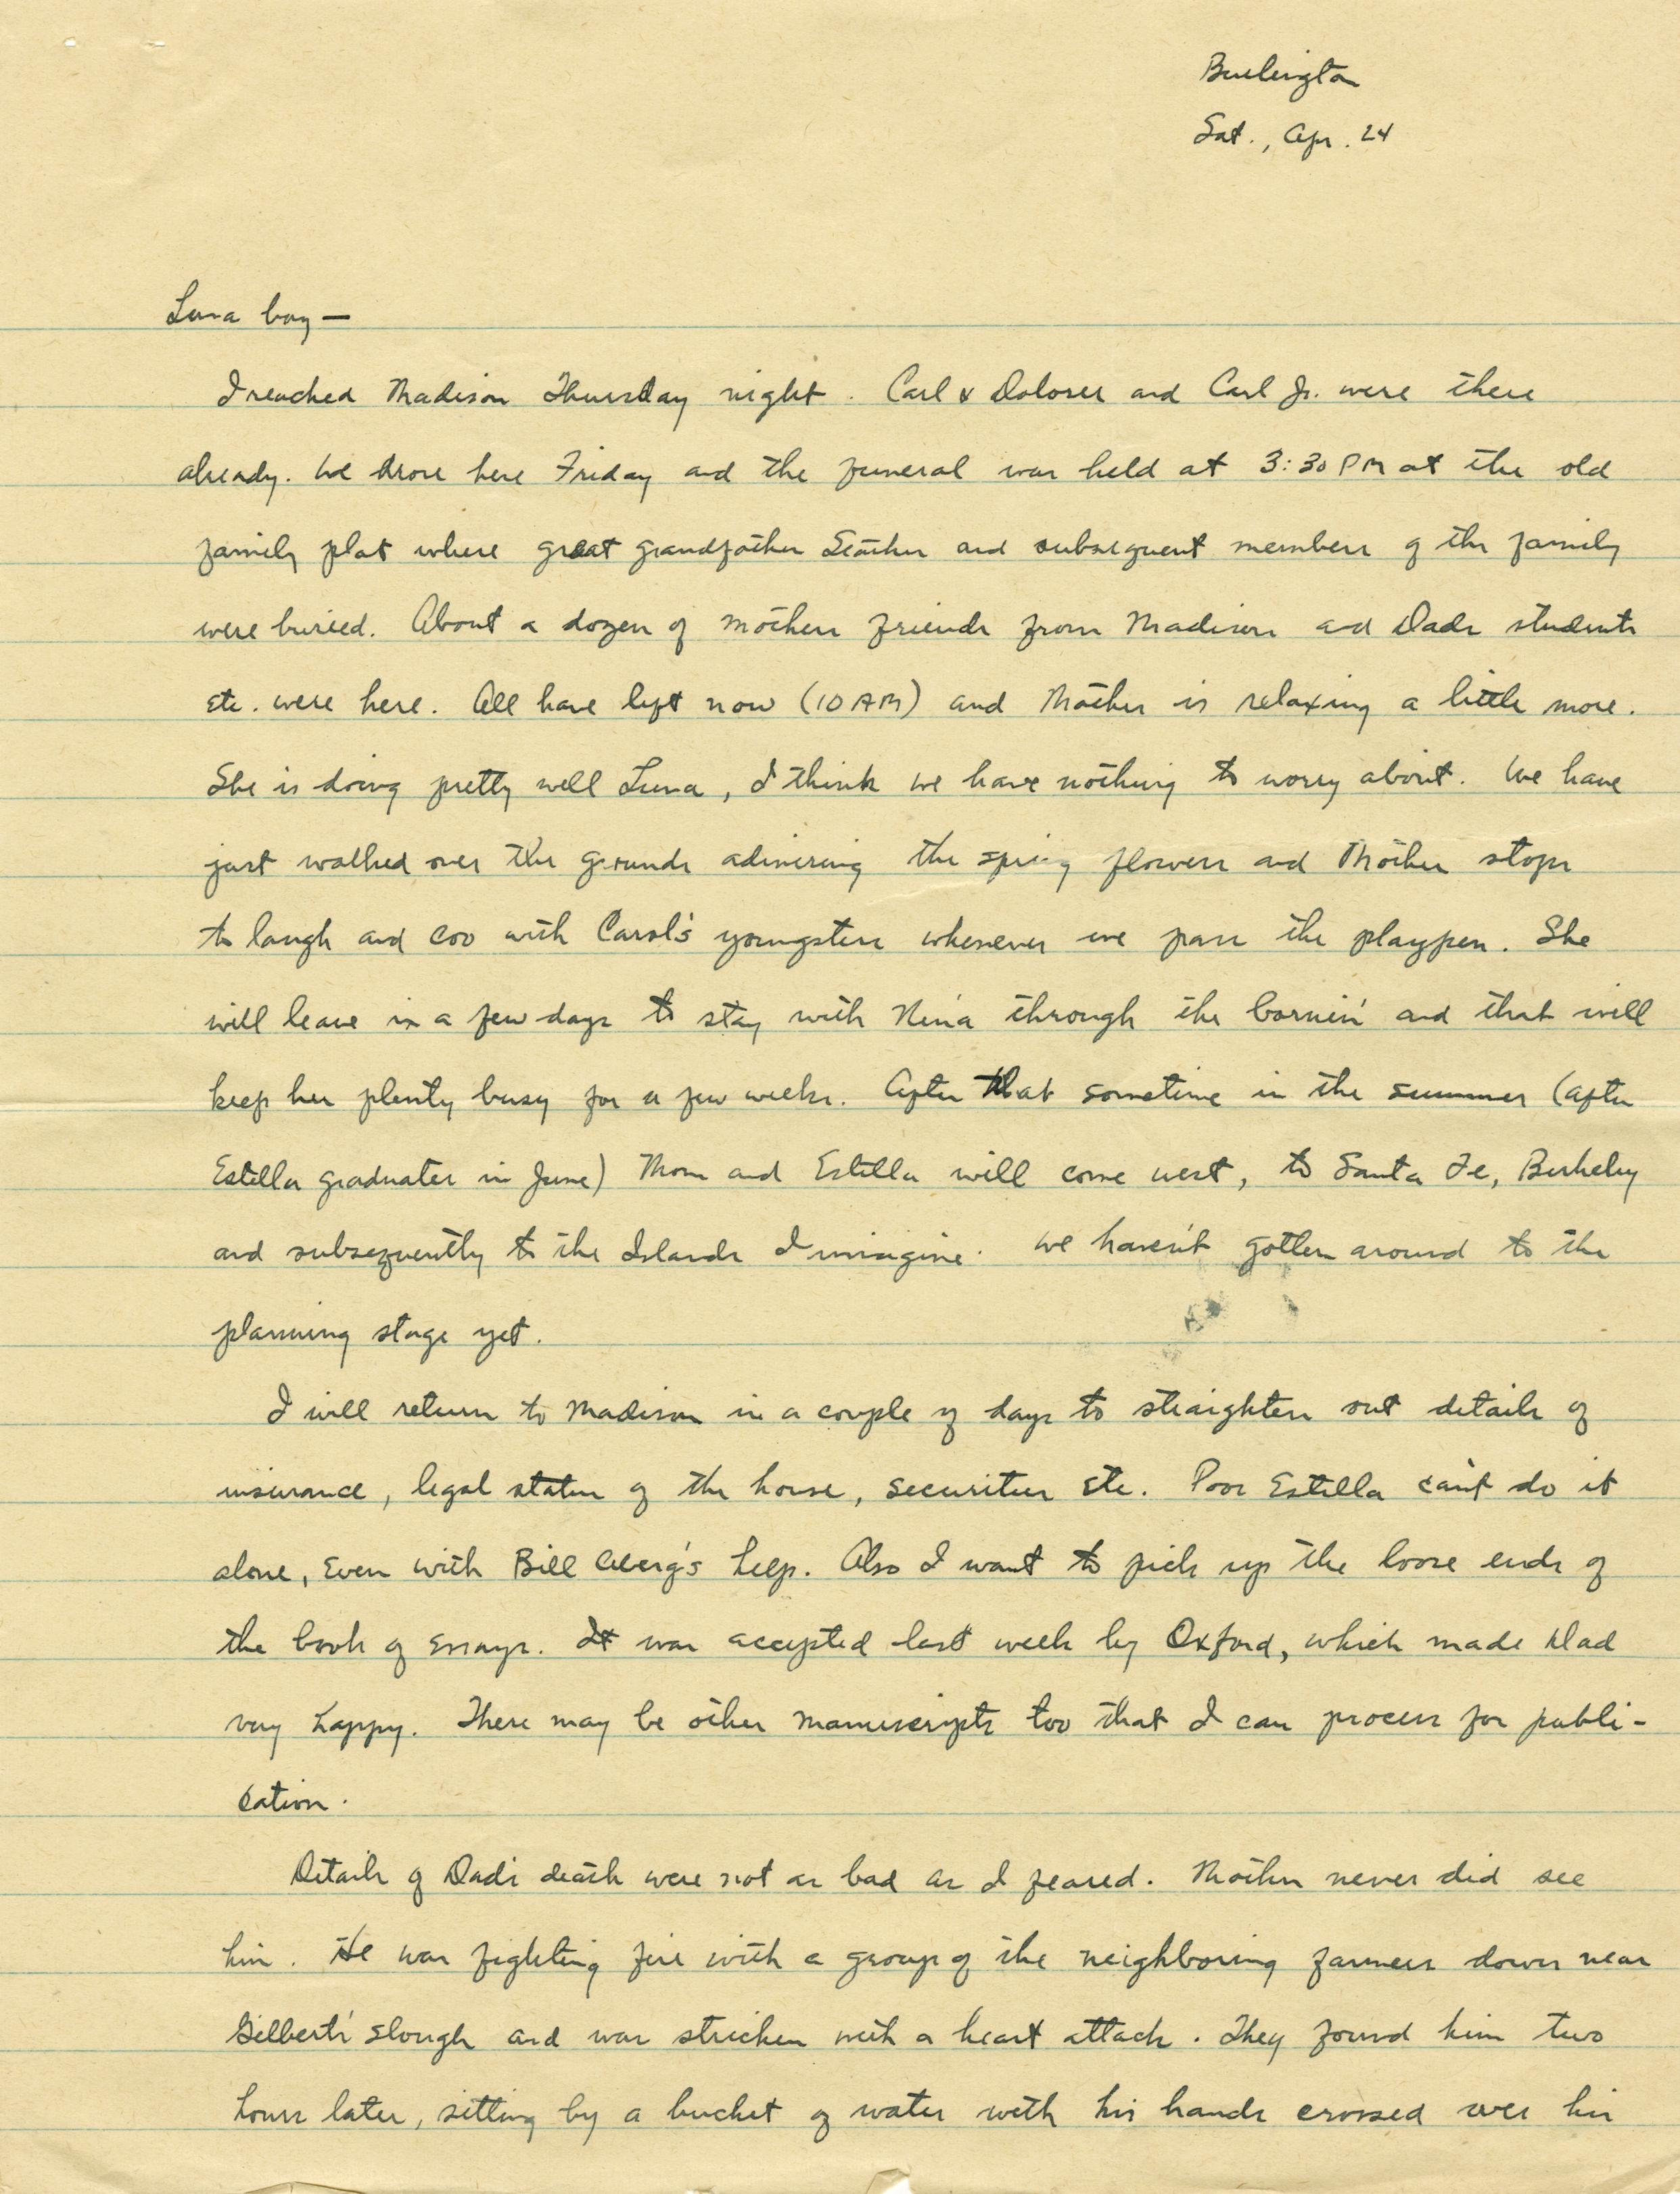 Burlington
Sat., Apr. 24
Luna boy —
I reached Madison Thursday night. Carl & Dolores and Carl Jr. were there
already. We drove here Friday and the funeral was held at 3:30 PM at the old
family plot where great grandfather Starker and subsequent members of the family
were buried. About a dozen of mothers friends from Madison and Dads students
etc. were here. All have left now (10 AM) and Mother is relaxing a little more.
She is doing pretty well Luna, I think we have nothing to worry about. We have
just walked over the grounds admiring the spring flowers and Mother stops
to laugh and coo with Carol's youngsters whenever we pass the playpen. She
will leave in a few days to stay with Nina through the bornin' and that will
keep her plenty busy for a few weeks. After that sometime in the summer (after
Estella graduates in June) Mom and Estella will come west, to Santa Fe, Berkeley
and subsequently to the Islands I imagine. We haven't gotten around to the
planning stage yet.
I will return to Madison in a couple of days to straighten out details of
insurance, legal status of the house, securities etc. Poor Estella can't do it
alone, even with Bill Aberg's help. Also I want to pick up the loose ends of
the book of essays. It was accepted last week by Oxford, which made Dad
very happy. There may be other manuscripts too that I can process for publi-
cation.
Details of Dads death were not as bad as I feared. Mother never did see
him. He was fighting fire with a group of the neighboring farmers down near
Gilberts' slough and was stricken with a heart attack. They found him two
hours later, sitting by a bucket of water with his hands crossed over his